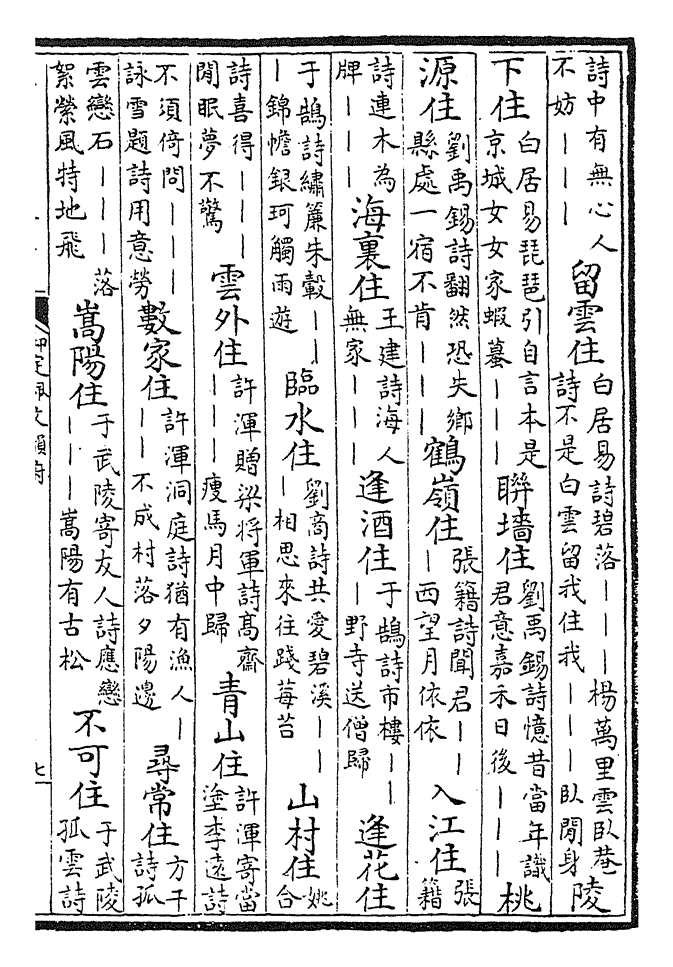 詩中有無心人
不妨｜｜｜
留雲住
白居易詩碧落｜｜｜楊萬里雲臥菴
詩不是白雲留我住我｜｜｜臥閒身
陵
下住
白居易琵琶引自言本是
京城女女家蝦蟇｜｜｜
聯墻住
劉禹錫詩憶昔當年識
君意嘉禾日後｜｜｜
桃
源住
劉禹錫詩翻然恐失鄉
縣處一宿不肯｜｜｜
鶴嶺住
張籍詩聞君｜｜
｜西望月依依
入江住
張
籍
詩連木為
牌｜｜｜
海裏住
王建詩海人
無家｜｜｜
逢酒住
于鵠詩市樓｜｜
｜野寺送僧歸
逢花住
于鵠詩繡簾朱轂｜｜
｜錦幨銀珂觸雨遊
臨水住
劉商詩共愛碧溪｜｜
｜相思來往踐莓苔
山村住
姚
合
詩喜得｜｜｜
閒眠夢不驚
雲外住
許渾贈梁将軍詩髙齋
｜｜｜瘦馬月中歸
青山住
許渾寄當
塗李遠詩
不須倚問｜｜｜
詠雪題詩用意勞
數家住
許渾洞庭詩猶有漁人｜
｜｜不成村落夕陽邊
尋常住
方干
詩孤
雲戀石｜｜｜落
絮縈風特地飛
嵩陽住
于武陵寄友人詩應戀
｜｜｜嵩陽有古松
不可住
于武陵
孤雲詩
七